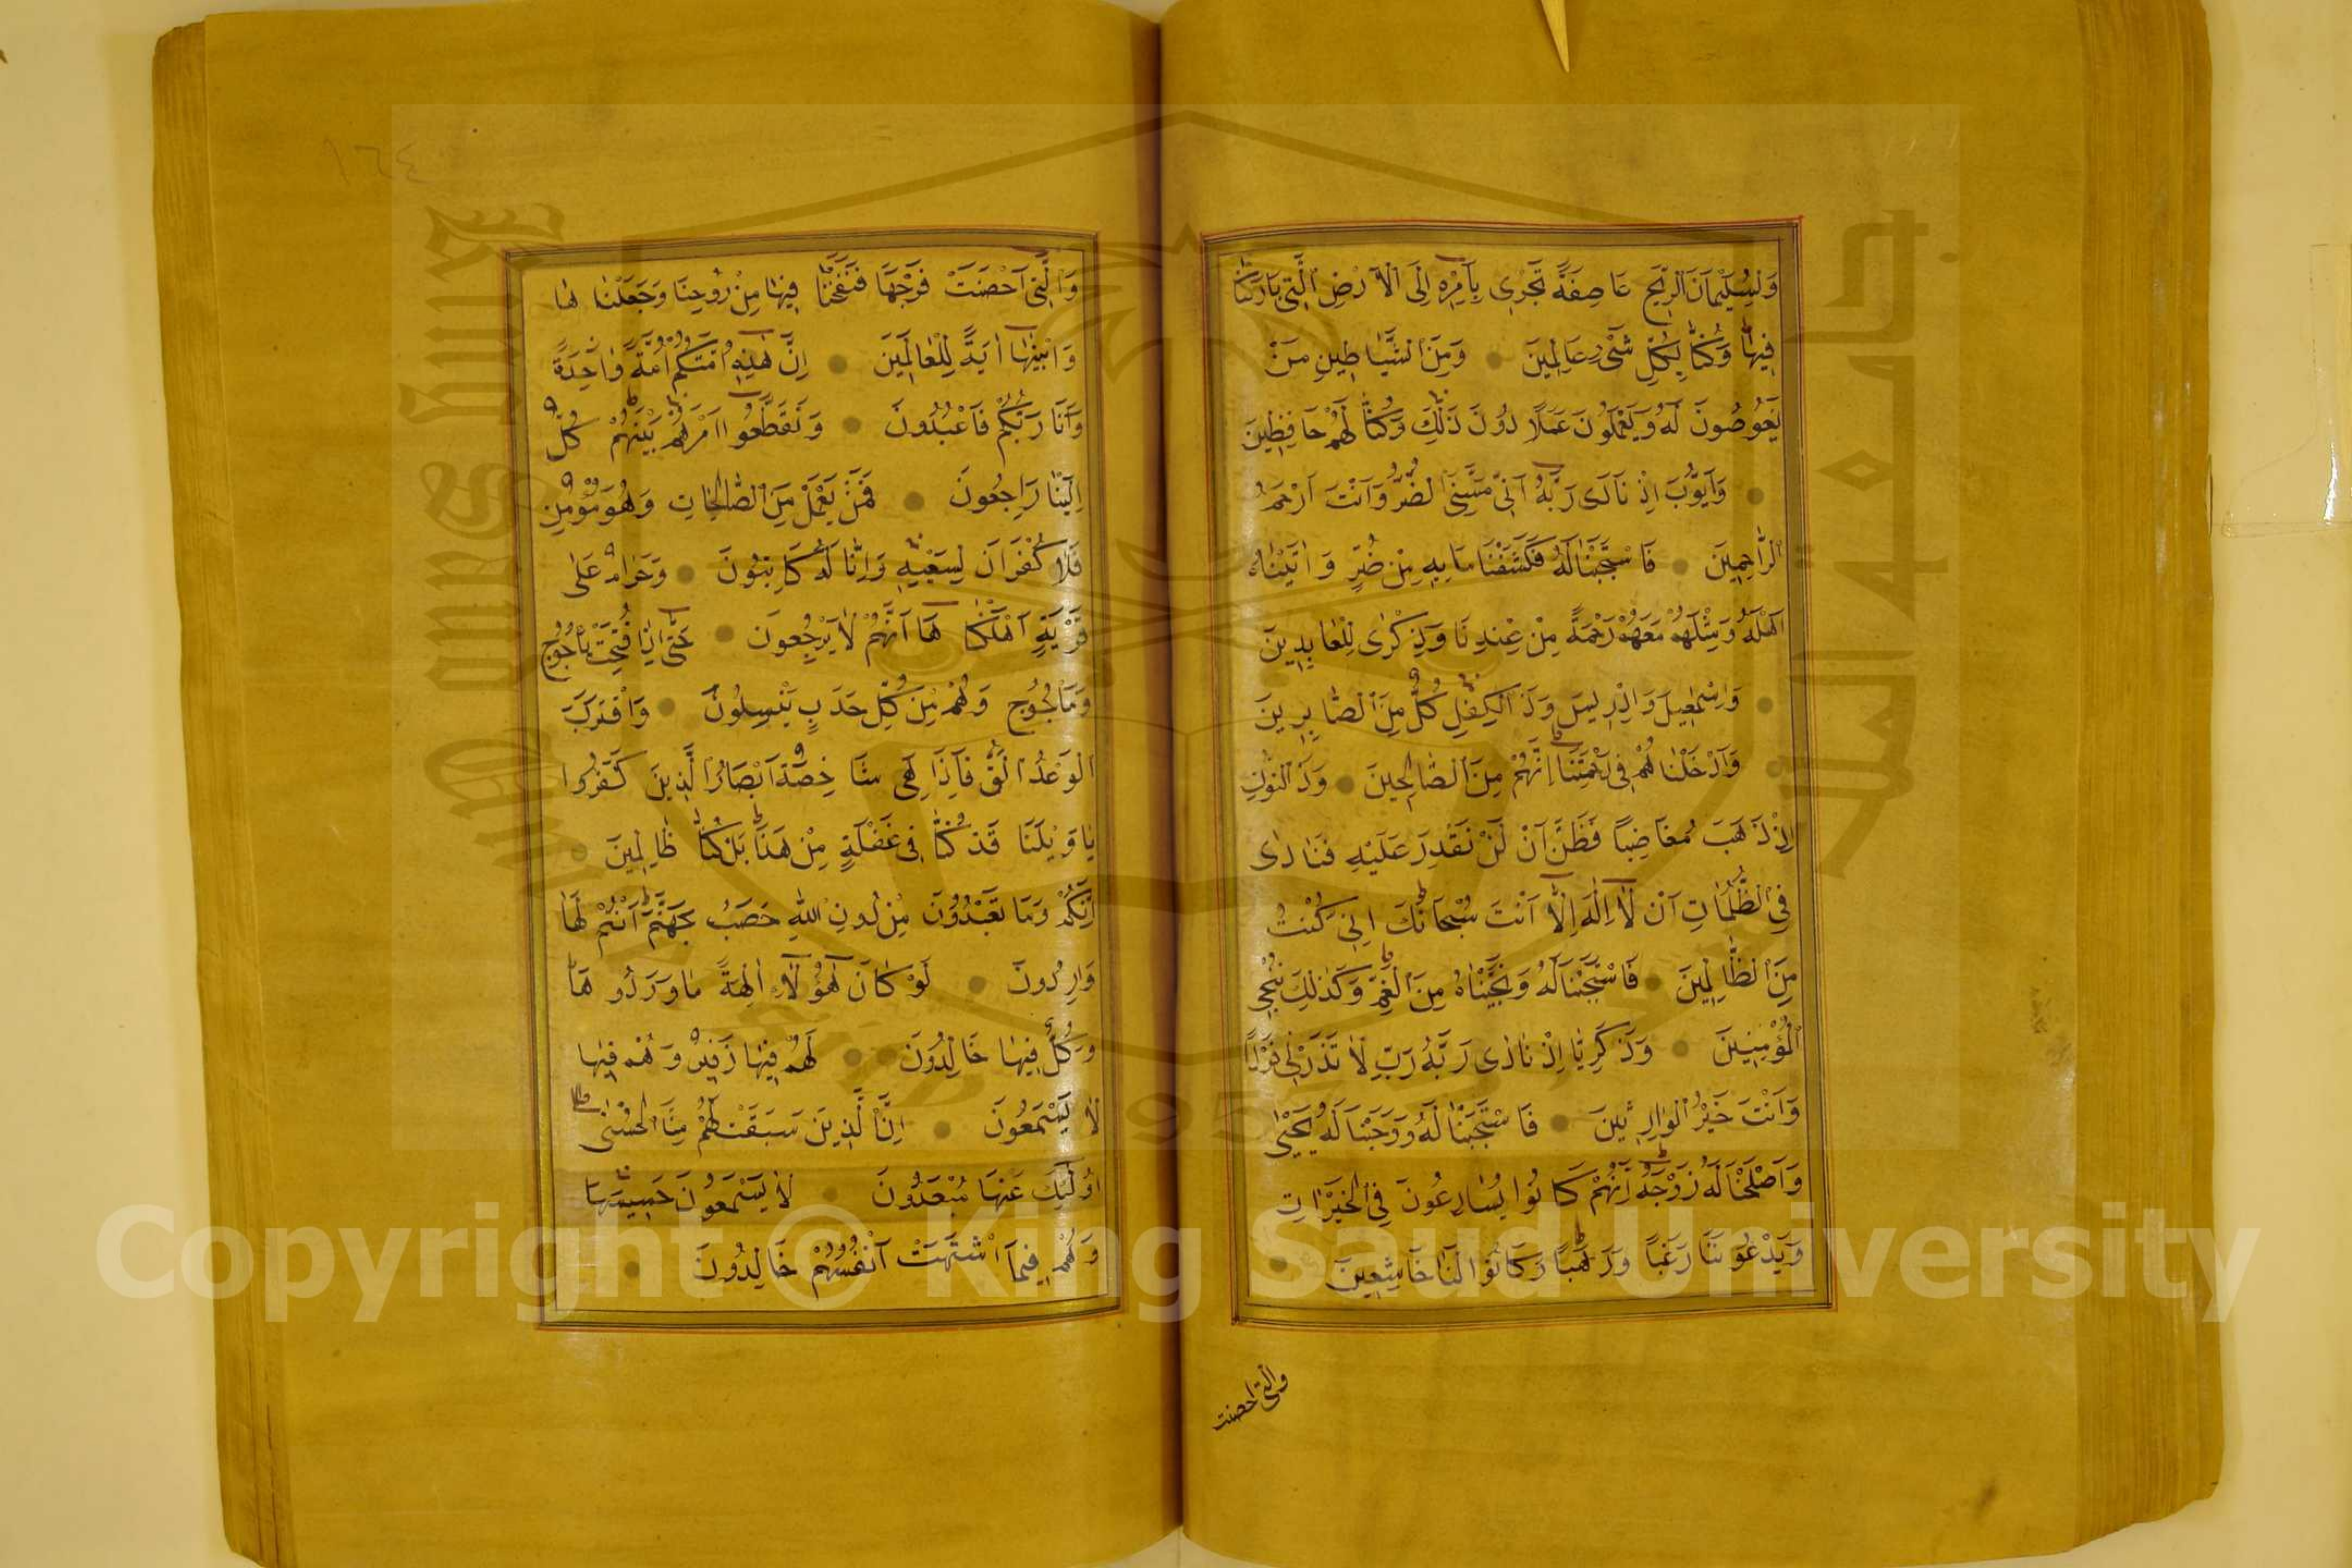 وَلِسُلَيْمَانَ الرِّيحَ عَاصِفَةً تَجْرِي بِأَمْرِهِ إِلَى الْأَرْضِ الَّتِي بَارَكْنَا
فِيهَا وَكُنَّا بِكُلِّ شَيْءٍ عَالِمِينَ وَمِنَ الشَّيَاطِينِ مَنْ
يَغُوصُونَ لَهُ وَيَعْمَلُونَ عَمَلًا دُونَ ذَلِكَ وَكُنَّا لَهُمْ حَافِظِينَ
وَأَيُّوبَ اِذْ نَادَى رَبَّهُ أَنِّي مَسَّنِيَ الضُّرُّ وَأَنْتَ أَرْحَمُ
الرَّاحِمِينَ فَاسْتَجَبْنَا لَهُ فَكَشَفْنَا مَا بِهِ مِنْ ضُرٍّ وَاٰتَيْنَاهُ
أَهْلَهُ وَمِثْلَهُمْ مَعَهُمْ رَحْمَةً مِنْ عِنْدِنَا وَذِكْرٰى لِلْعَابِدِينَ
وَاِسْمٰعِيلَ وَاِدْرِيسَ وَذَا الْكِفْلِ كُلٌّ مِنَ الصَّابِرِينَ
وَأَدْخَلْنَاهُمْ فِي رَحْمَتِنَا اِنَّهُمْ مِنَ الصَّالِحِينَ وَذَا النُّونِ
اِذْ ذَهَبَ مُغَاضِبًا فَظَنَّ أَنْ لَنْ نَقْدِرَ عَلَيْهِ فَنَادٰى
فِي الظُّلُمَاتِ أَنْ لَا اِلٰهَ اِلَّا أَنْتَ سُبْحَانَكَ اِنِّي كُنْتُ
مِنَ الظَّالِمِينَ فَاسْتَجَبْنَا لَهُ وَنَجَّيْنَاهُ مِنَ الْغَمِّ وَكَذٰلِكَ نُنْجِي
الْمُؤْمِنِينَ وَزَكَرِيَّا اِذْ نَادٰى رَبَّهُ رَبِّ لَا تَذَرْنِي فَرْدًا
وَأَنْتَ خَيْرُ الْوَارِثِينَ فَاسْتَجَبْنَا لَهُ وَوَهَبْنَا لَهُ يَحْيٰى
وَأَصْلَحْنَا لَهُ زَوْجَهُ اِنَّهُمْ كَانُوا يُسَارِعُونَ فِي الْخَيْرَاتِ
وَيَدْعُونَنَا رَغَبًا وَرَهَبًا وَكَانُوا لَنَا خَاشِعِينَ
والتي احصنت
١٦٤
وَالَّتِي أَحْصَنَتْ فَرْجَهَا فَنَفَخْنَا فِيهَا مِنْ رُوحِنَا وَجَعَلْنَاهَا
وَابْنَهَا اٰيَةً لِلْعَالَمِينَ اِنَّ هٰذِهِ أُمَّتُكُمْ أُمَّةً وَاحِدَةً
وَأَنَا رَبُّكُمْ فَاعْبُدُونَ وَتَقَطَّعُوا أَمْرَهُمْ بَيْنَهُمْ كُلٌّ
اِلَيْنَا رَاجِعُونَ فَمَنْ يَعْمَلْ مِنَ الصَّالِحَاتِ وَهُوَ مُؤْمِنٌ
فَلَا كُفْرَانَ لِسَعْيِهِ وَاِنَّا لَهُ كَاتِبُونَ وَحَرَامٌ عَلٰى
قَرْيَةٍ أَهْلَكْنَاهَا أَنَّهُمْ لَا يَرْجِعُونَ حَتّٰى اِذَا فُتِحَتْ يَأْجُوجُ
وَمَأْجُوجُ وَهُمْ مِنْ كُلِّ حَدَبٍ يَنْسِلُونَ وَاقْتَرَبَ
الْوَعْدُ الْحَقُّ فَاِذَا هِيَ شَاخِصَةٌ أَبْصَارُ الَّذِينَ كَفَرُوا
يَا وَيْلَنَا قَدْ كُنَّا فِي غَفْلَةٍ مِنْ هَذَا بَلْ كُنَّا ظَالِمِينَ
اِنَّكُمْ وَمَا تَعْبُدُونَ مِنْ دُونِ اللّٰهِ حَصَبُ جَهَنَّمَ أَنْتُمْ لَهَا
وَارِدُونَ لَوْ كَانَ هٰؤُلَاءِ اٰلِهَةً مَا وَرَدُوهَا
وَكُلٌّ فِيهَا خَالِدُونَ لَهُمْ فِيهَا زَفِيرٌ وَهُمْ فِيهَا
لَا يَسْمَعُونَ اِنَّ الَّذِينَ سَبَقَتْ لَهُمْ مِنَّا الْحُسْنٰى
أُولٰئِكَ عَنْهَا مُبْعَدُونَ لَا يَسْمَعُونَ حَسِيسَهَا
وَهُمْ فِيمَا اشْتَهَتْ أَنْفُسُهُمْ خَالِدُونَ
Copyright © King Saud University
King Saud University
جامعة الملك سعود
1957